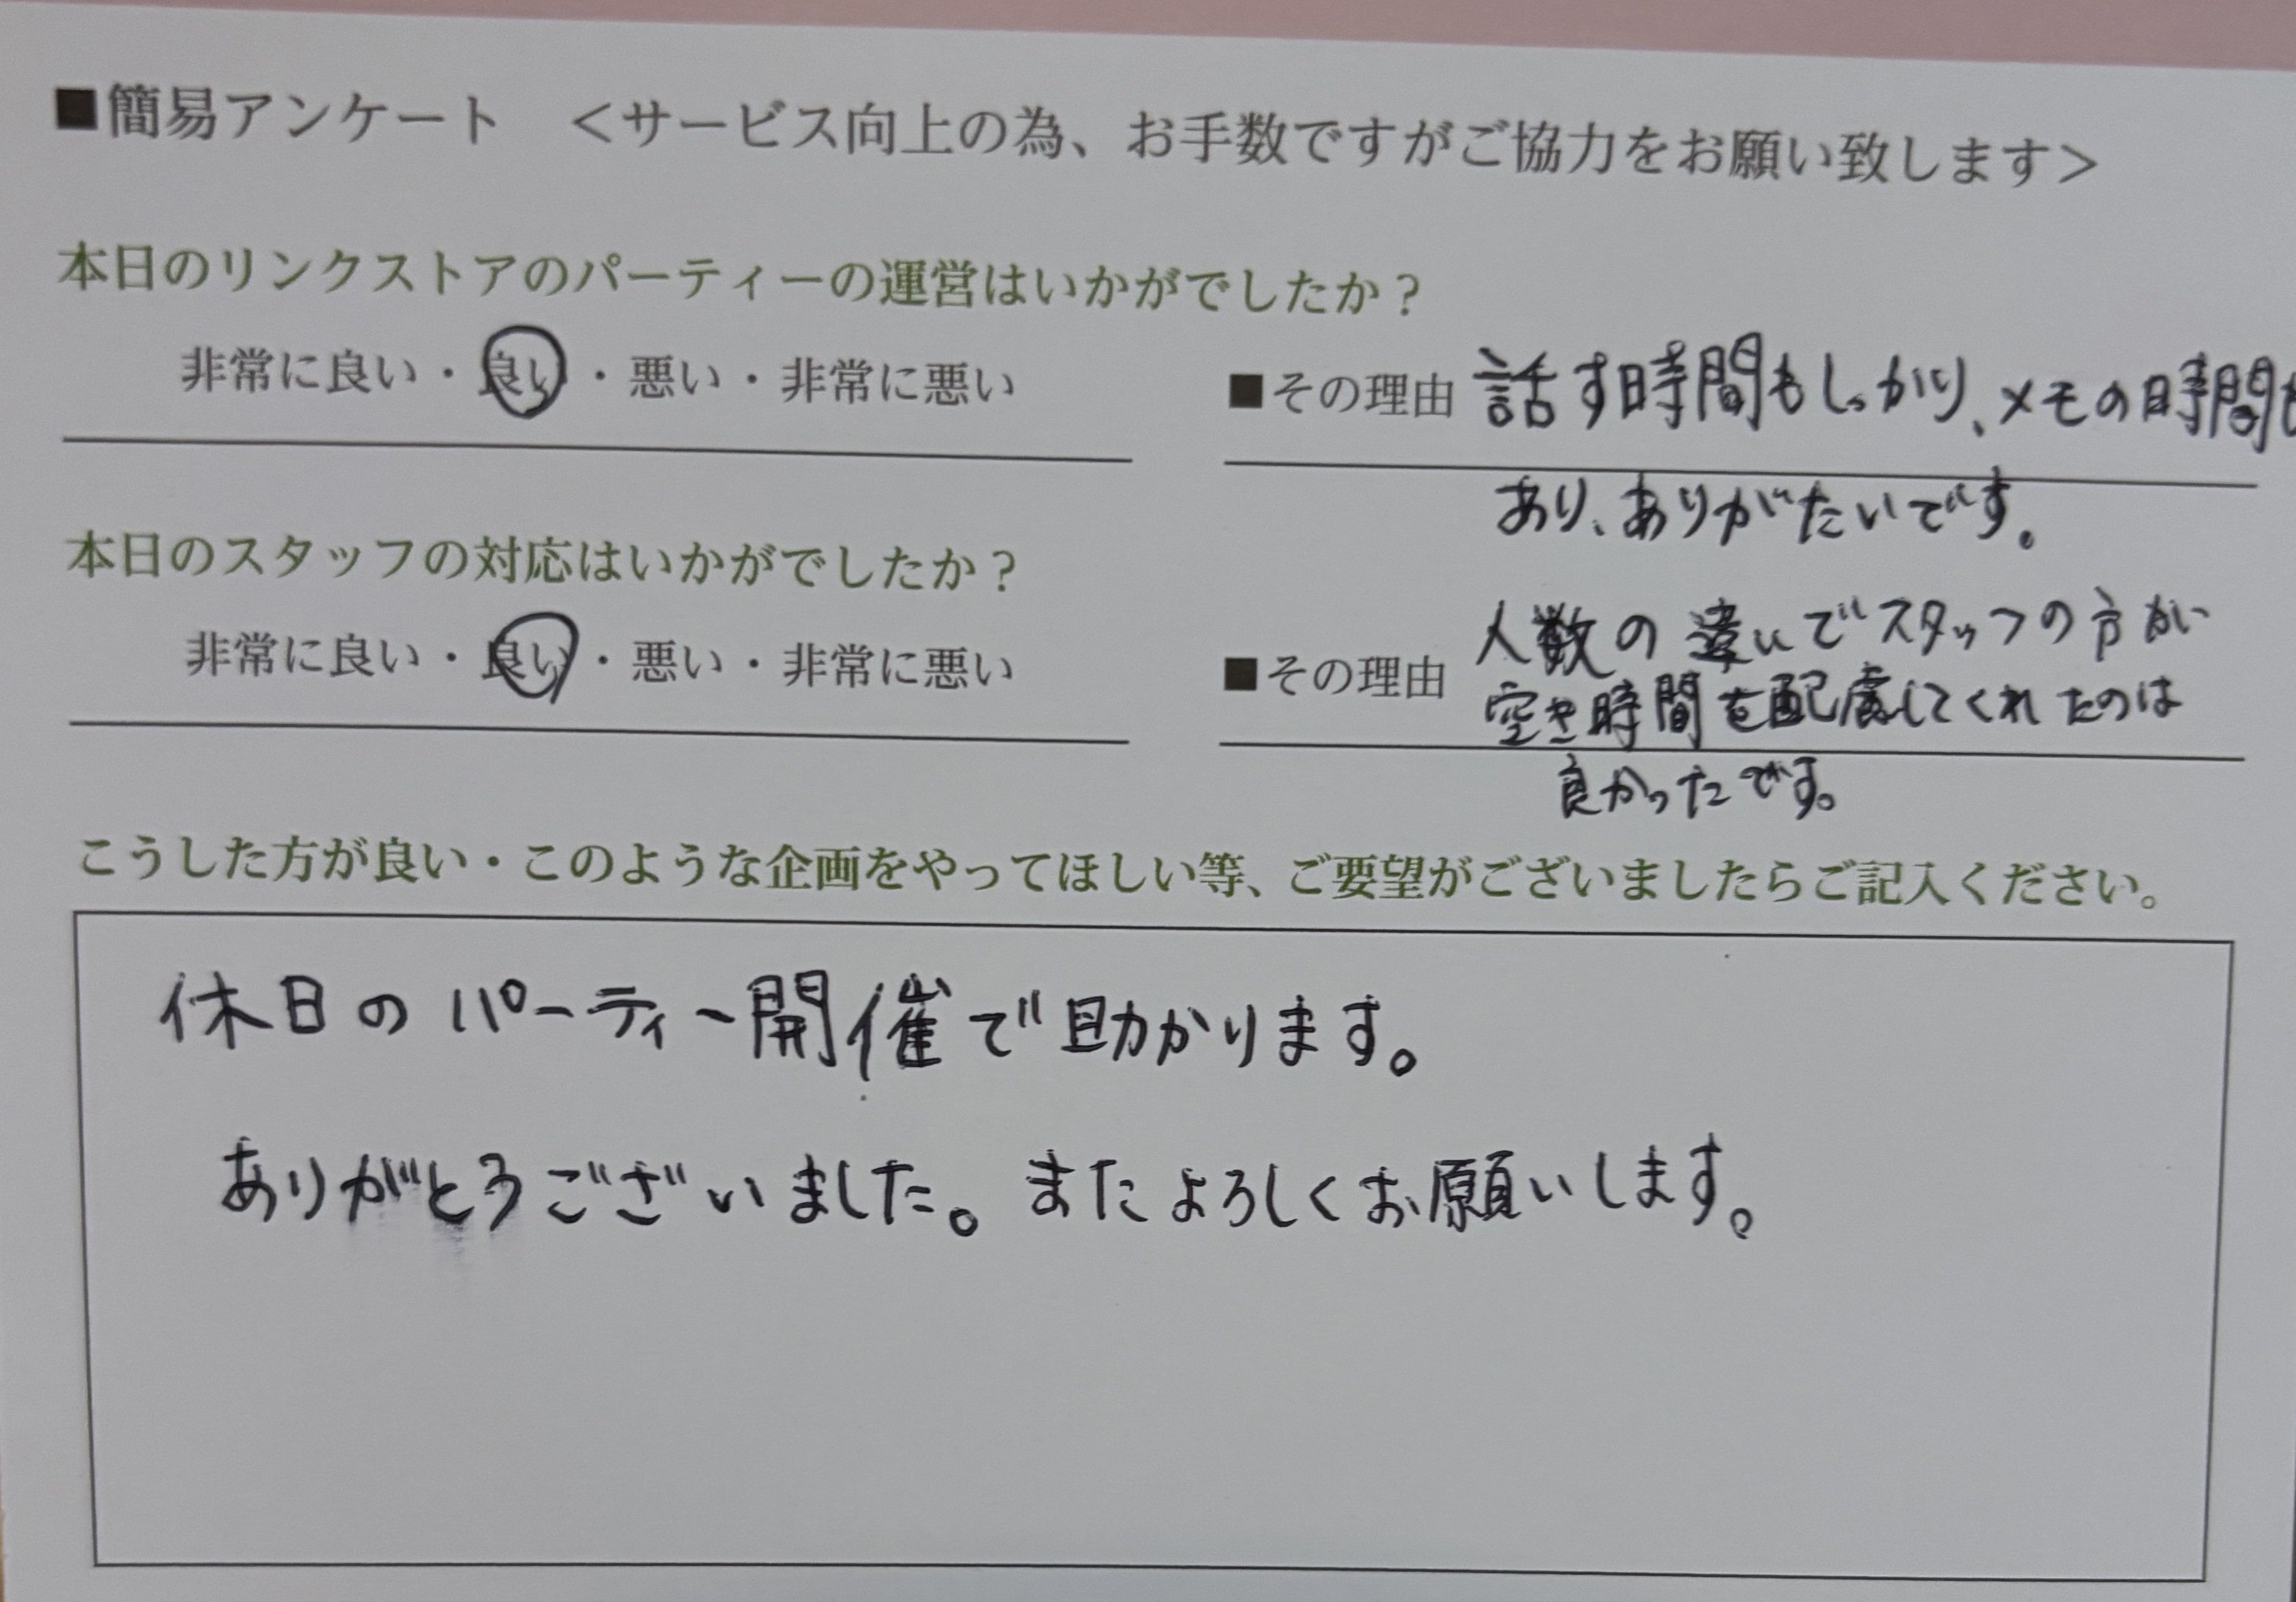 ■簡易アンケート　＜サービス向上の為、お手数ですがご協力をお願い致します＞
本日のリンクストアのパーティーの運営はいかがでしたか？
非常に良い・良い・悪い・非常に悪い
■その理由 話す時間もしっかり、メモの時間も
あり、ありがたいです。
本日のスタッフの対応はいかがでしたか？
非常に良い・良い・悪い・非常に悪い
■その理由
人数の違いでスタッフの方が
空き時間を配慮してくれたのは
良かったです。
こうした方が良い・このような企画をやってほしい等、ご要望がございましたらご記入ください。
休日のパーティー開催で助かります。
ありがとうございました。またよろしくお願いします。